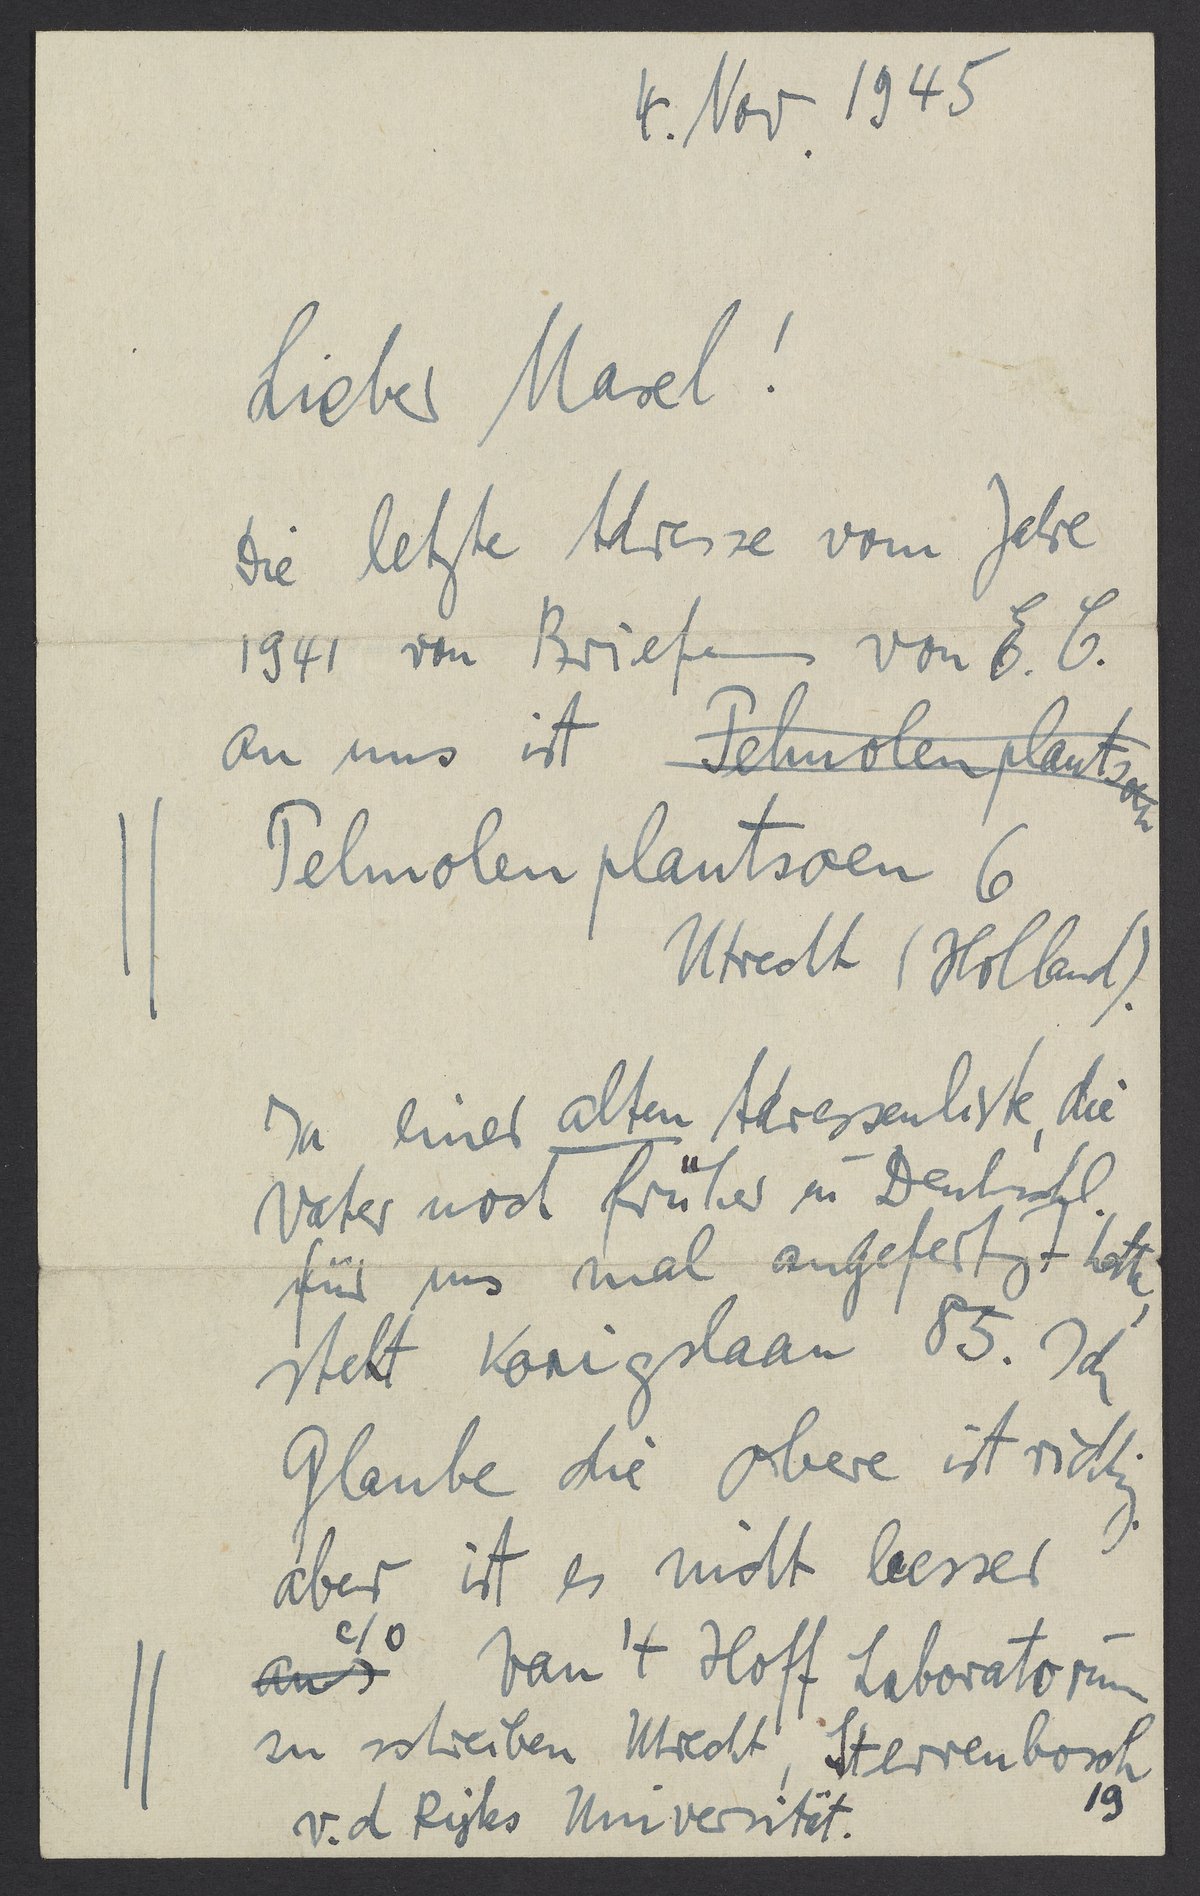 4. Nov. 1945
Lieber Maxel!
Die letzte Adresse vom Jahre
1941 von Briefen von E. C.
an uns ist Telmolenplantsoen
Telmolenplantsoen 6
Utrecht (Holland).
In einer alten Adressenliste, die
Vater noch früher in Deutschl.
für uns mal angefertigt hatte,
steht Konigslaan 85. Ich
Glaube die obere ist richtig.
aber ist es nicht besser
ans c/o Van 't Hoff Laboratorium
zu schreiben Utrecht, Sterrenbosch
19
v.d Rijks Universität.